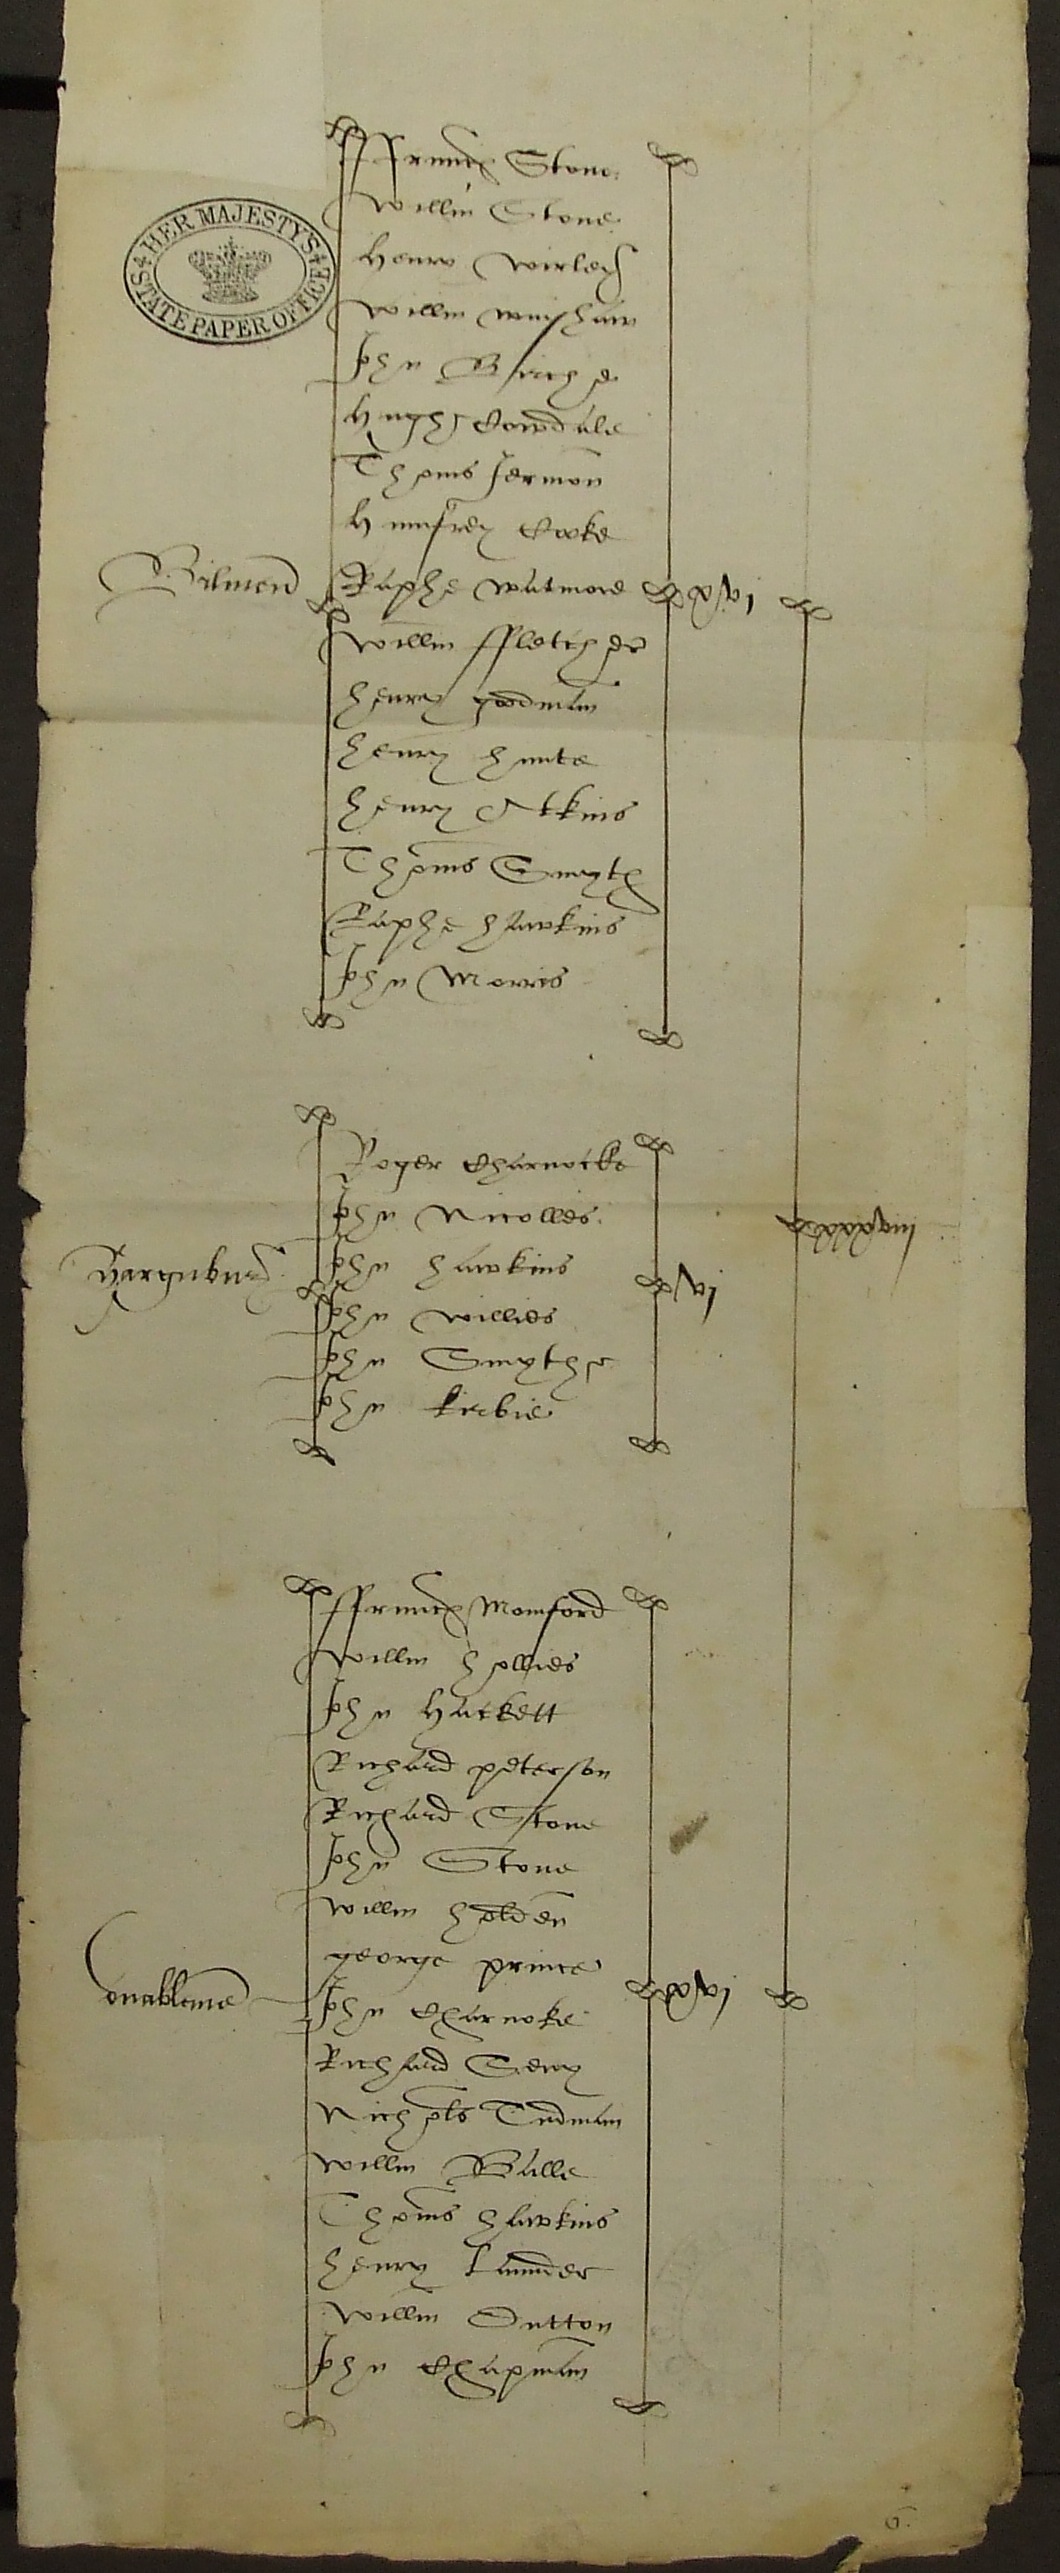 HER MAJESTY'S STATE PAPER OFFICE
ffrancis Stone
Willm Stone
Henry Wirley
Willm
Jhn Birche
Hughe Cowdale
Thoms Jermon
Humfrey Cooke
Raphe Watmore xvj
Willm ffletcher
henry goodman
henry hunte
henry Atkins
Thoms Smyth
Raphe hawkins
Jhn Morris
Roger Charnocke
Jhn Nicolles
Jhn hawkins vj
Jhn Willies
Jhn Smythe
Jhn kirbie
ffrancis Momford
Willm hollies
Jhn Hackett
Richard peterson
Richard Stone
Jhn Stone
Willm holden
george prince
Jhn Charnoke xvj
Richard
Nichols Tudman
Willm Balle
Thoms hawkins
henry Launder
Willm Sutton
Jhn Chapman
6